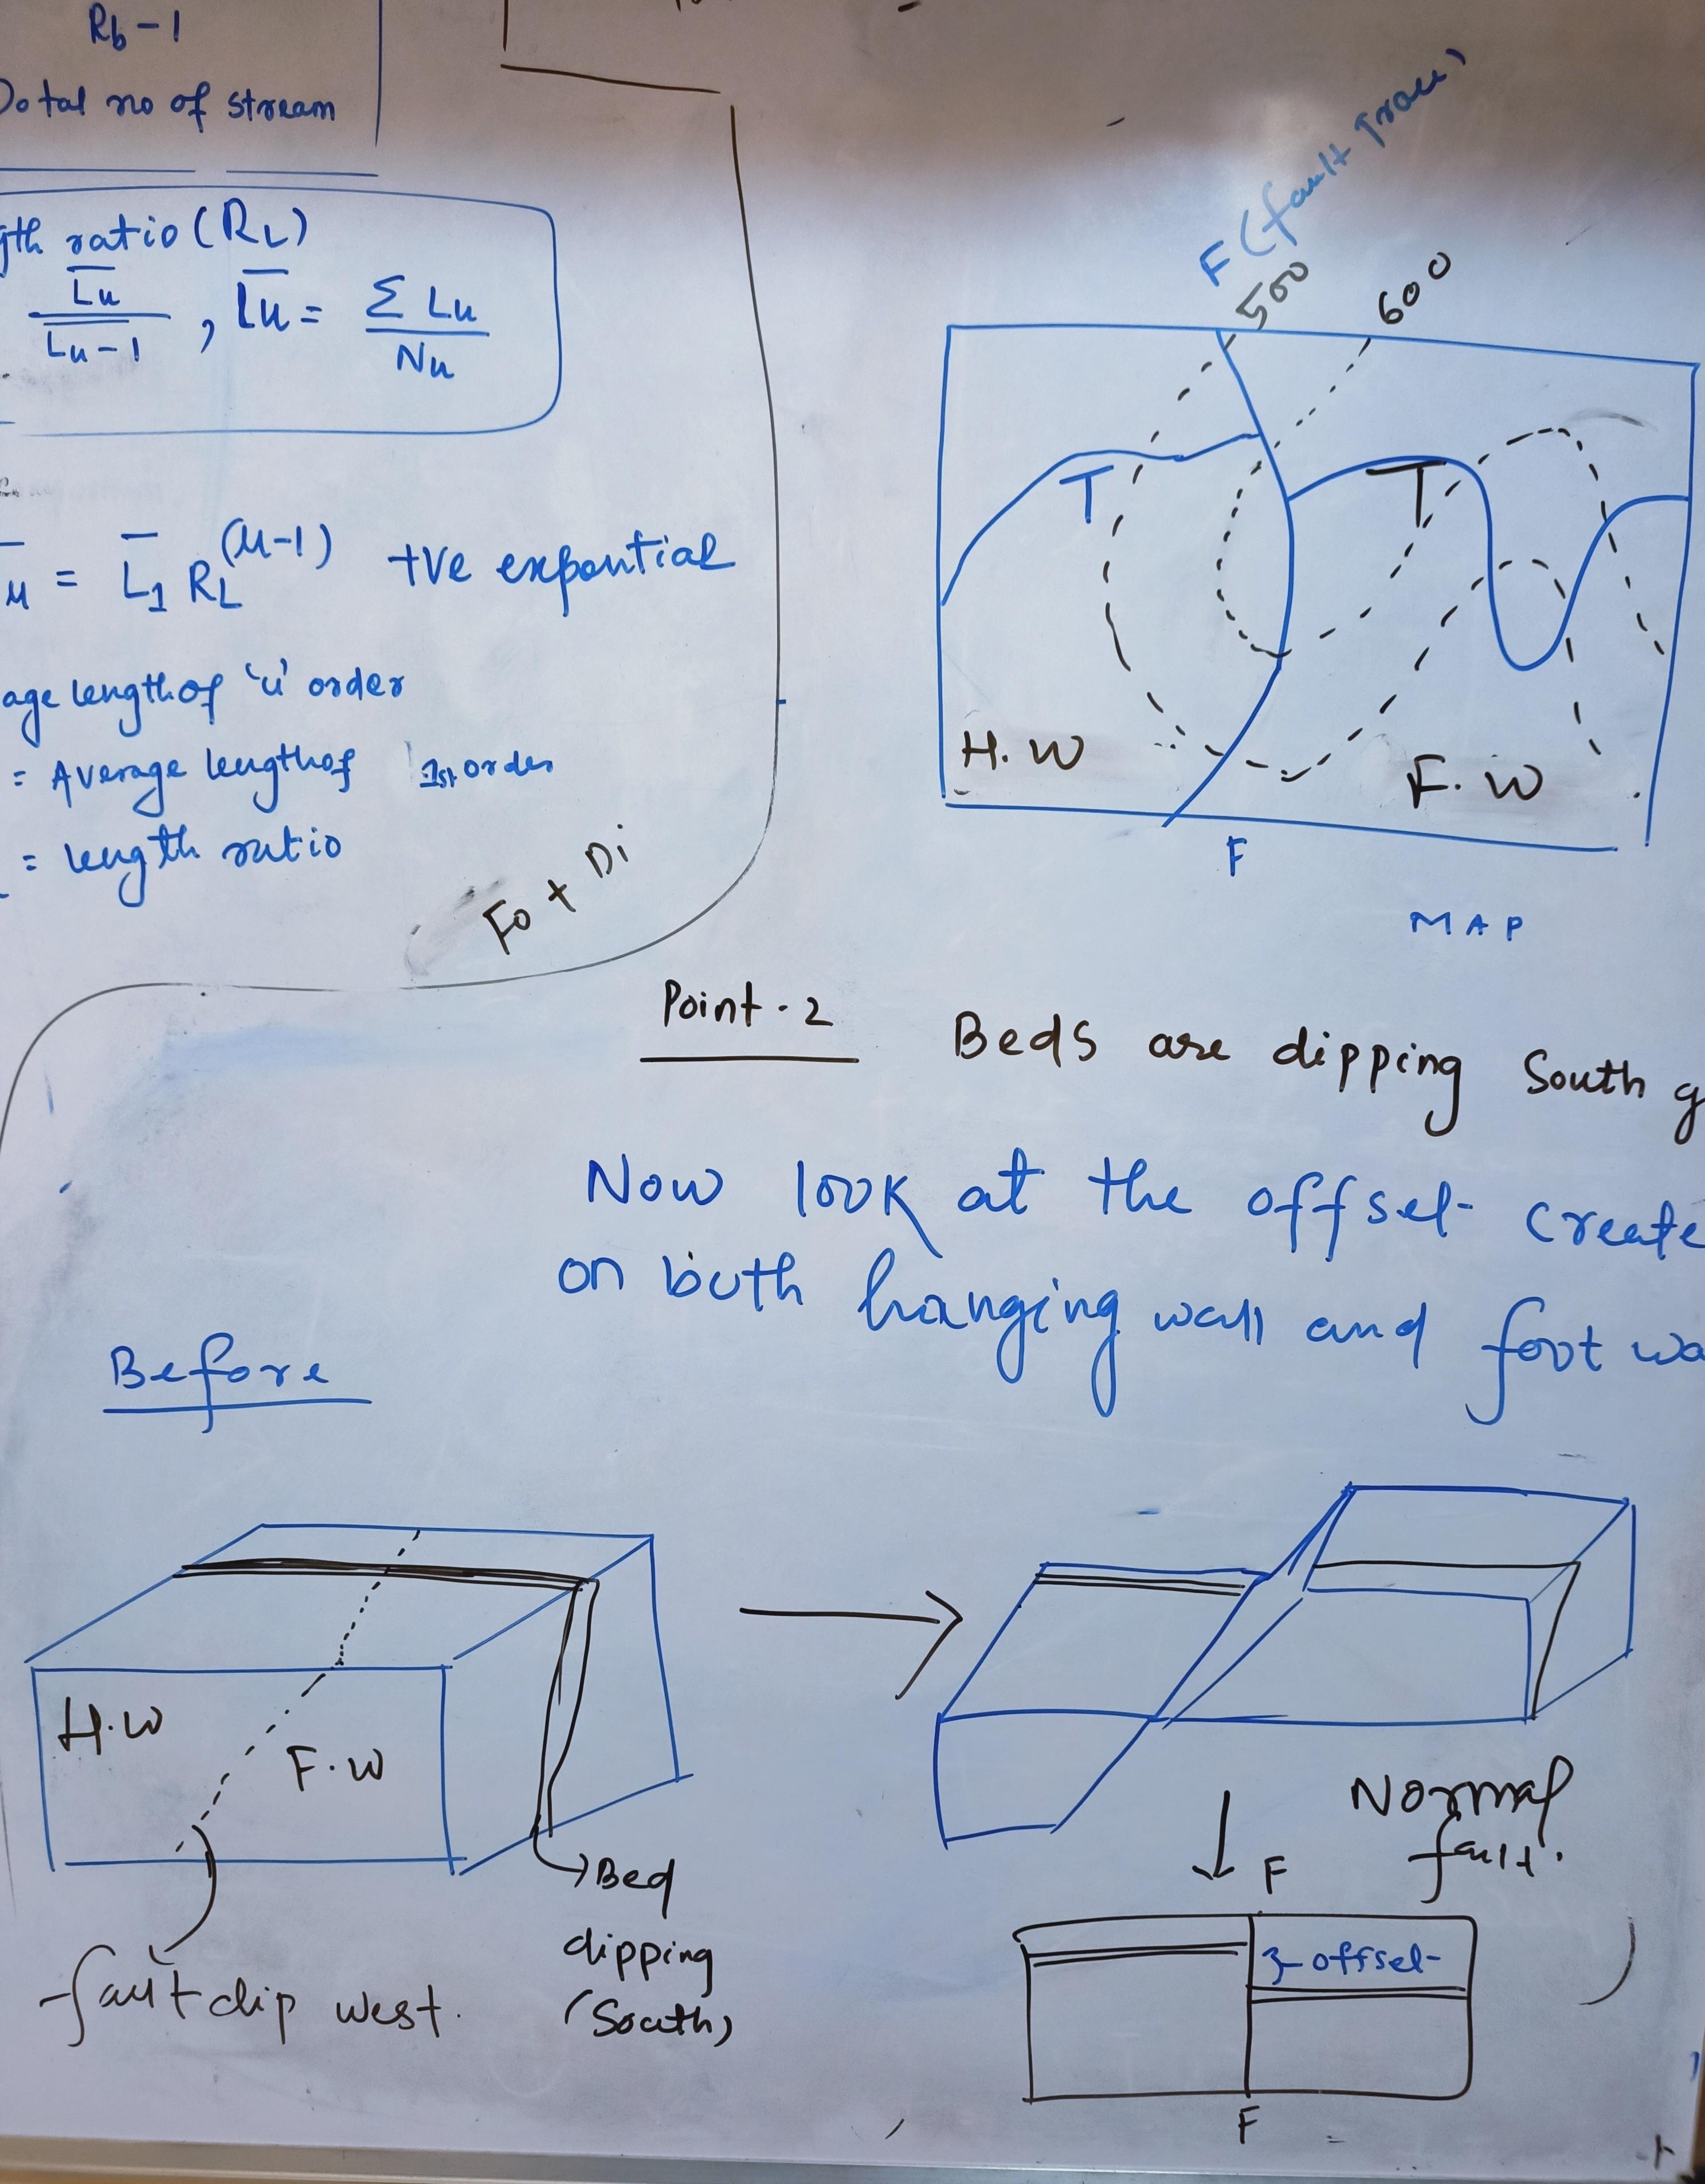 Rb-1
total no of stream
gth ratio (RL)
L̅u / L̅u-1 , L̅u = Σ Lu / Nu
u = L̅1 RL^(u-1) +ve expontial
age length of 'u' order
= Average length of 1st order
= length ratio
Fo + Di
F (fault Trace)
500
600
T
T
H.W
F.W
F
MAP
Point-2 Beds are dipping South
Now look at the offset create
on both hanging wall and foot wa
Before
H.W
F.W
Bed
dipping
(South)
fault dip west.
Normal
fault.
F
offset
F